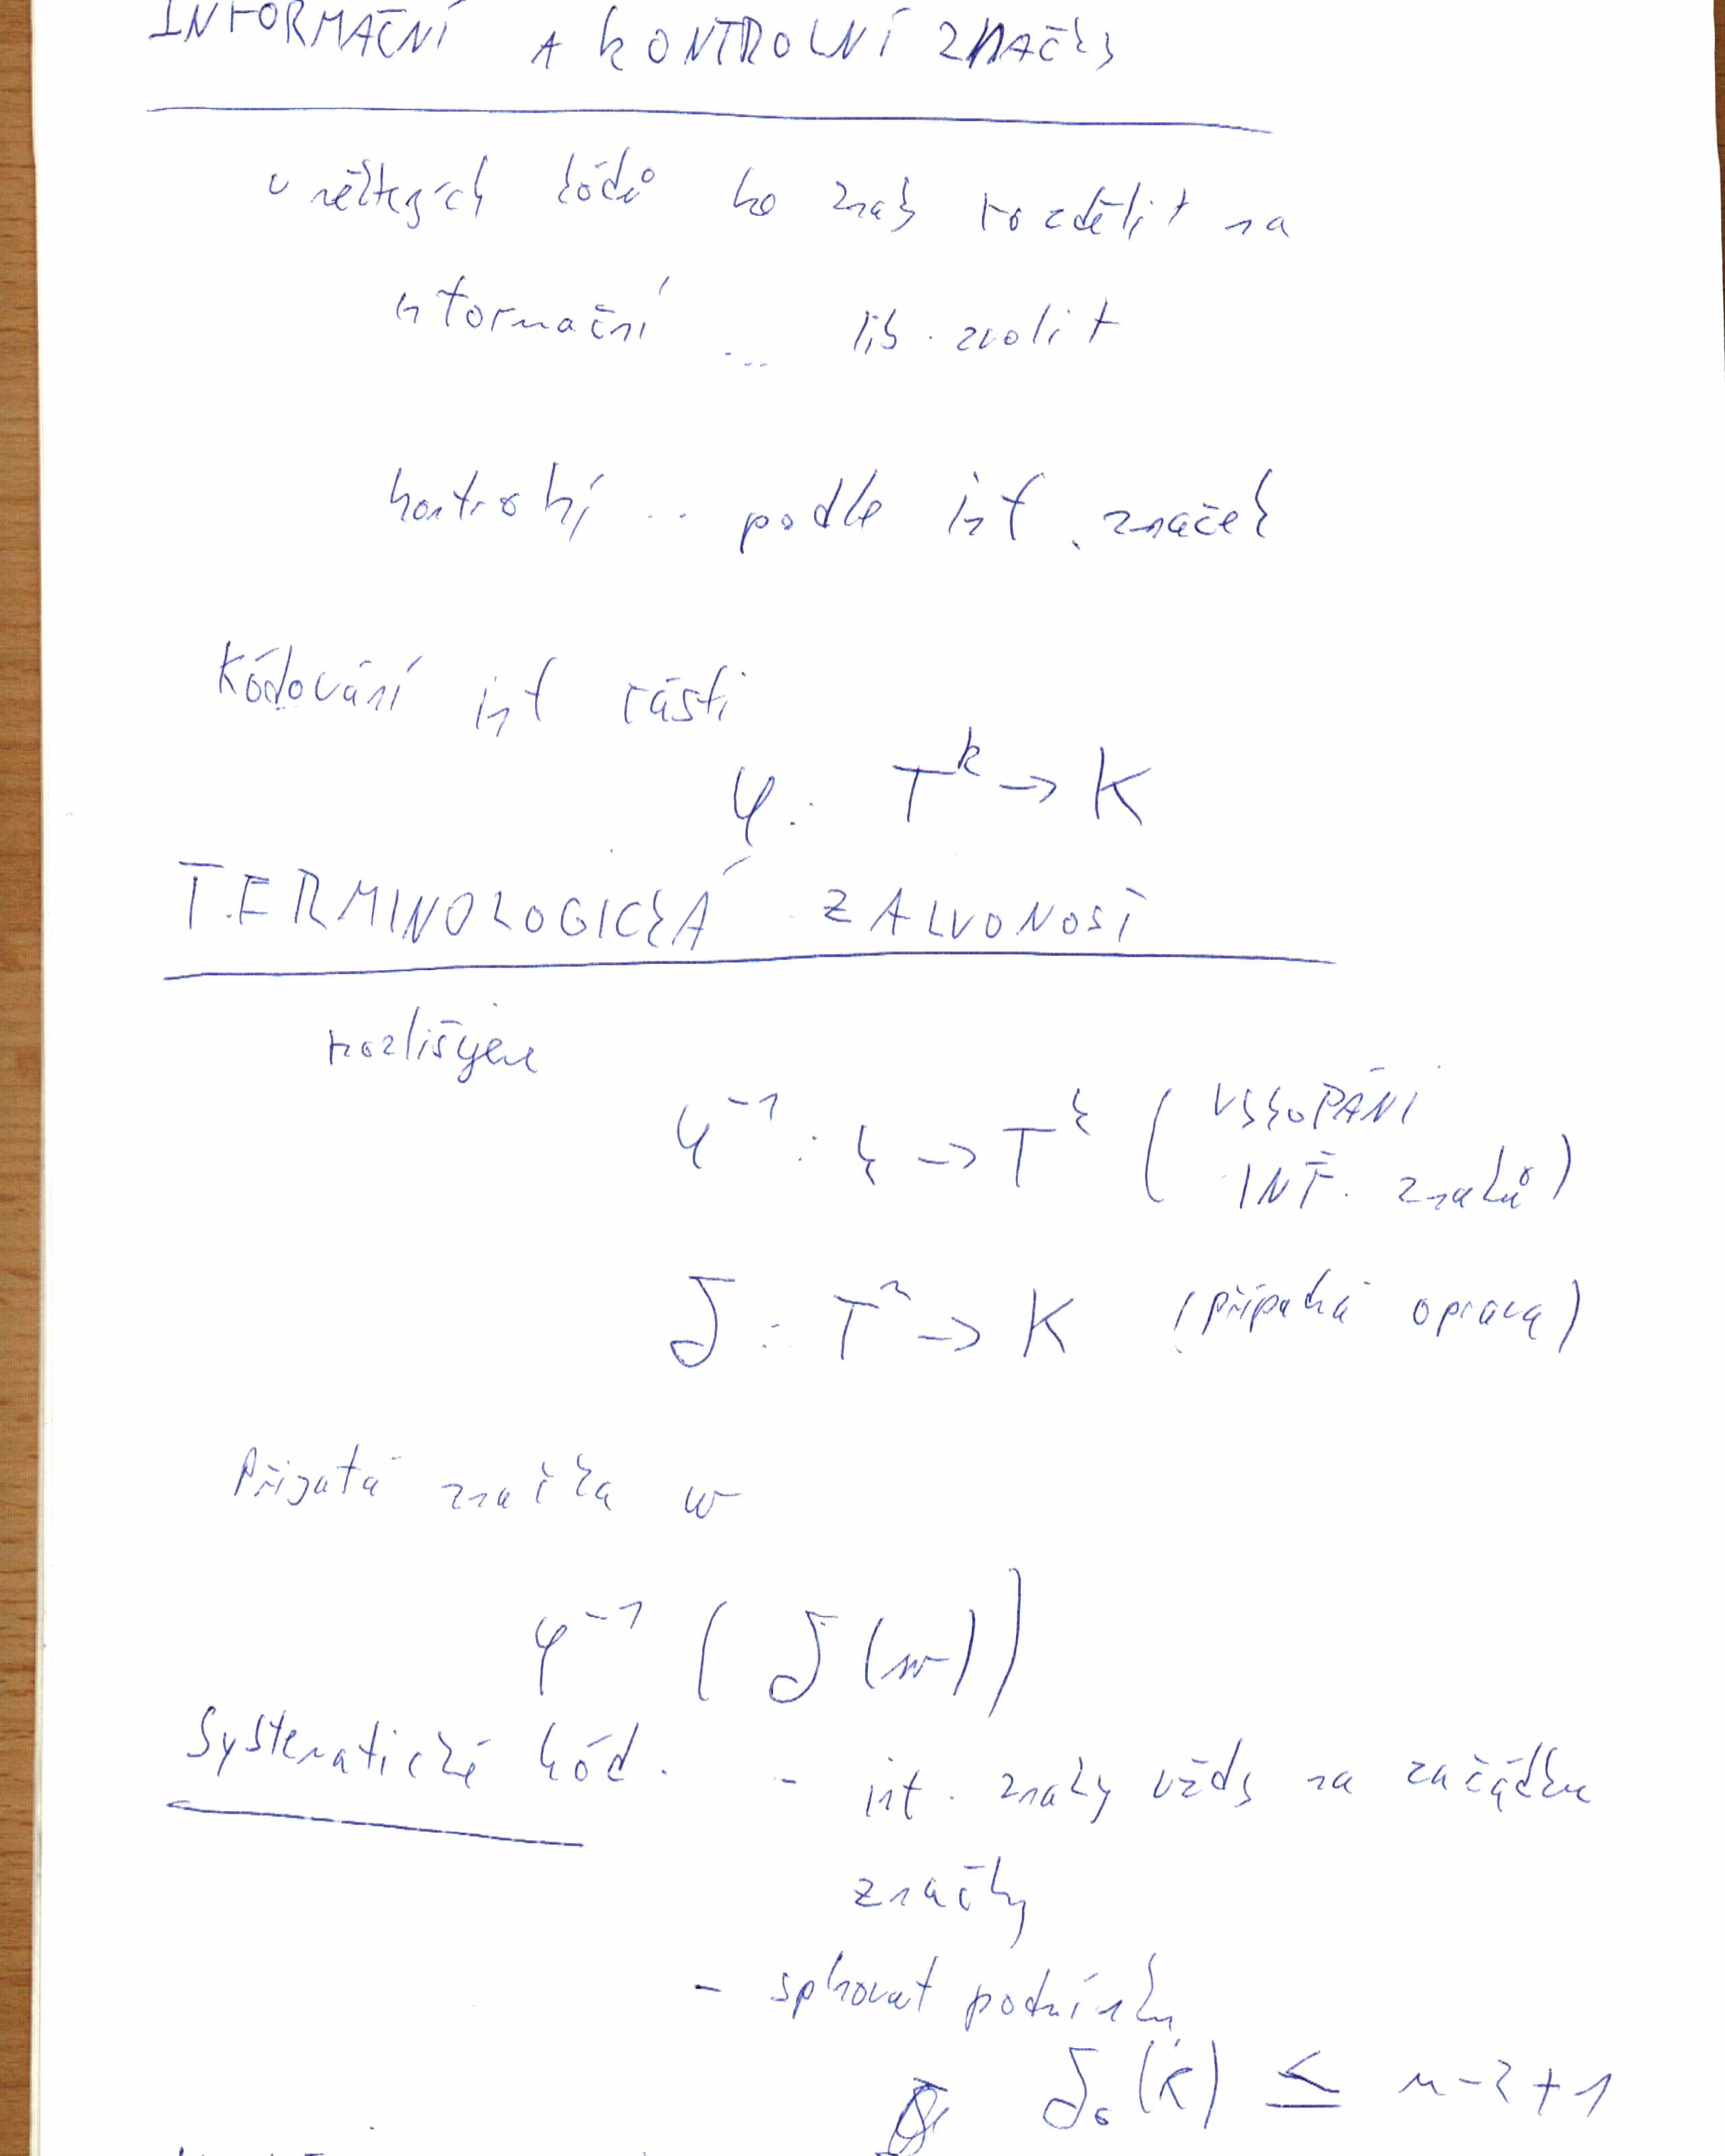 INFORMAČNÍ A KONTROLNÍ ZNAČKY
U některých kódů lze znaky rozdělit na
informační ... lib. zvolit
kontrolní .. podle inf. značek
Kódování inf části
φ: T^k → K
TERMINOLOGICKÁ ZÁLUDNOST
rozlišujeme
φ^-1 : K → T^k (VYKOPÁNÍ
INF. znaků)
δ : T^n → K (případná oprava)
Přijatá značka w
φ^-1 (δ(w))
Systematické kód. - inf. znaky vždy na začátku
značky
- splňovat podmínku
δ_0(K) ≤ n-k+1